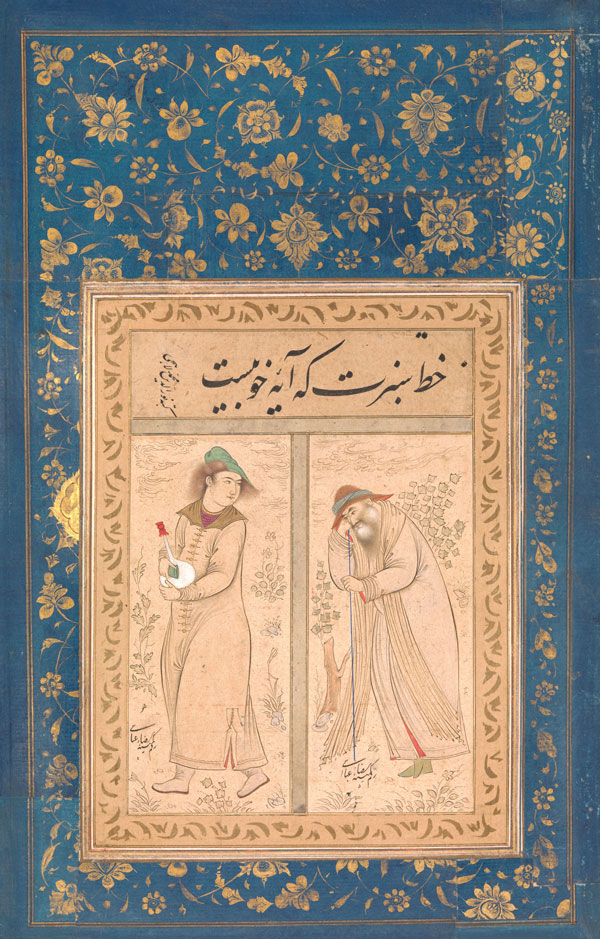 خط سبزت که آیهٔ خوبیست
رقم کمینه رضاء عباسی
رقم کمینه رضاء عباسی